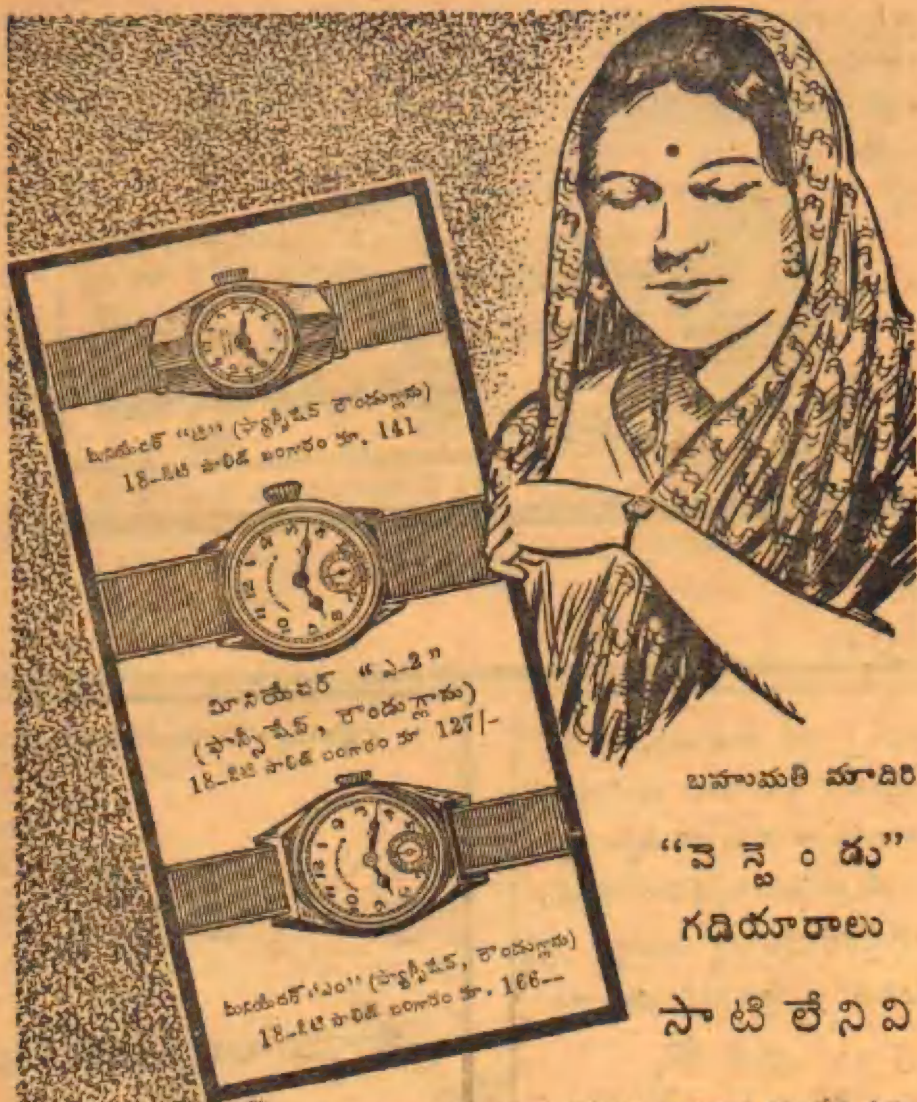 మినియేచర్ "టి" (ఫ్యాన్సీషేప్ రౌండుగ్లాసు)
18-కెటి సాలిడ్ బంగారం రూ. 141
మినియేచర్ "ఎ-2"
(ఫాన్సీషేప్, రౌండుగ్లాసు)
18-కెటి సాలిడ్ బంగారం రూ 127/-
మినియేచర్ "ఎం" (ఫ్యాన్సీషేప్, రౌండుగ్లాసు)
18-కెటి సాలిడ్ బంగారం రూ. 166--
బహుమతి మాదిరి
"వెస్టెండు"
గడియారాలు
సాటి లేనివి